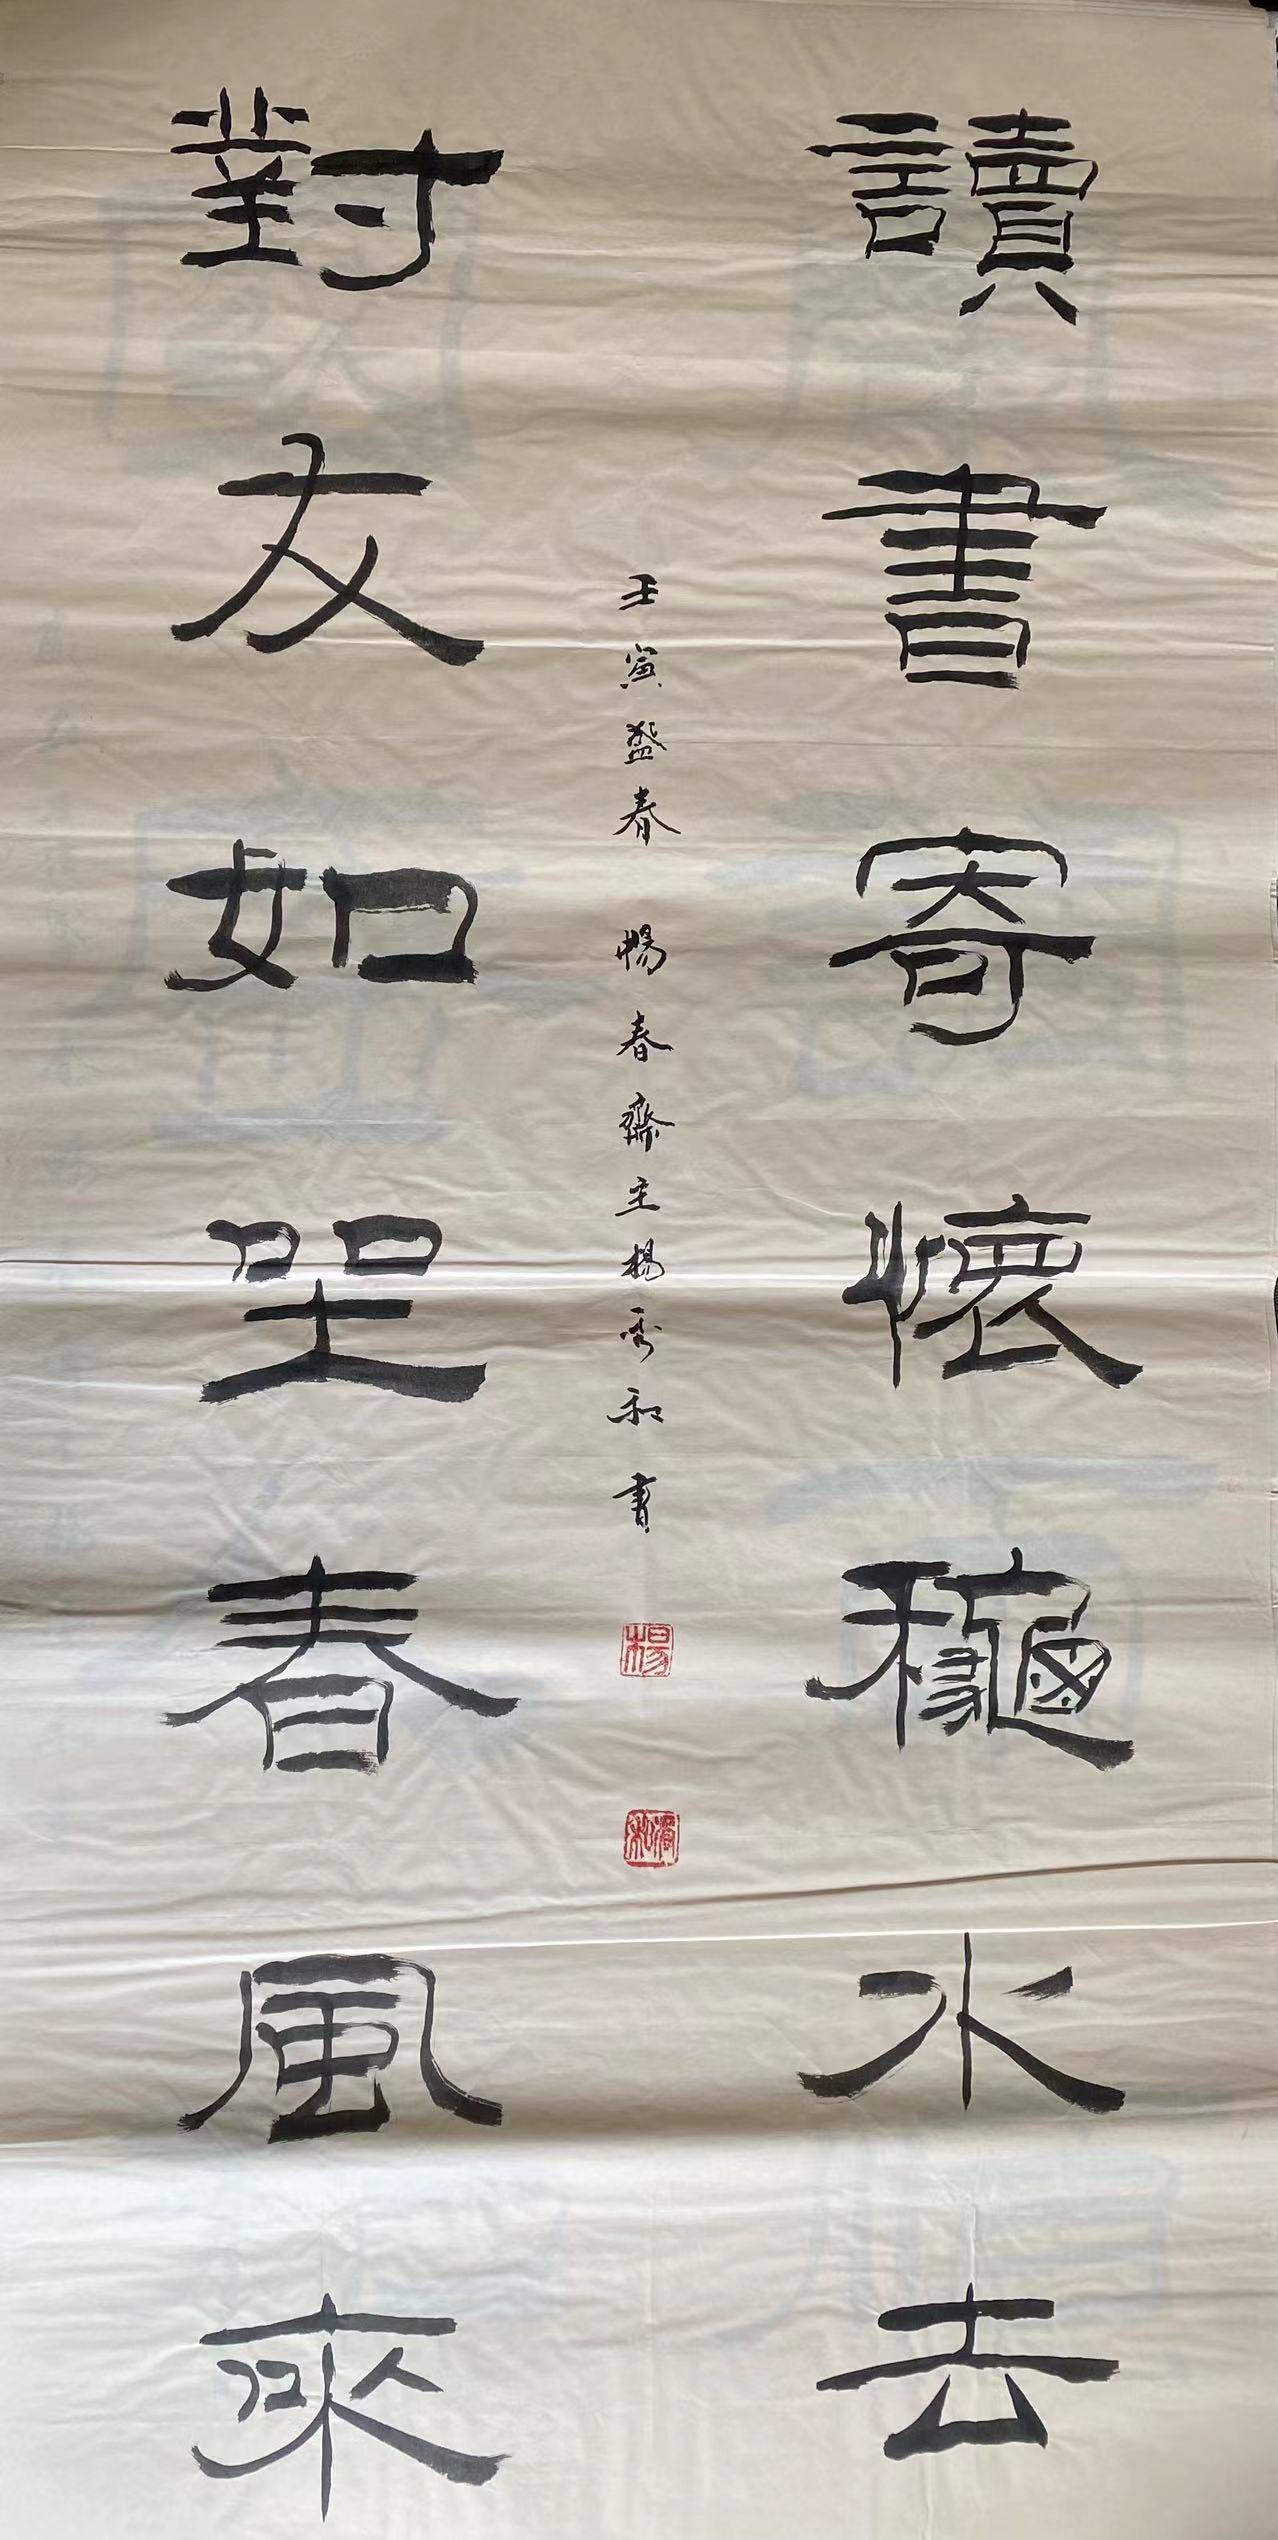 讀書寄懷龝水去
對友如坐春風來
壬寅盛春 暢春齋主楊秀和書
楊